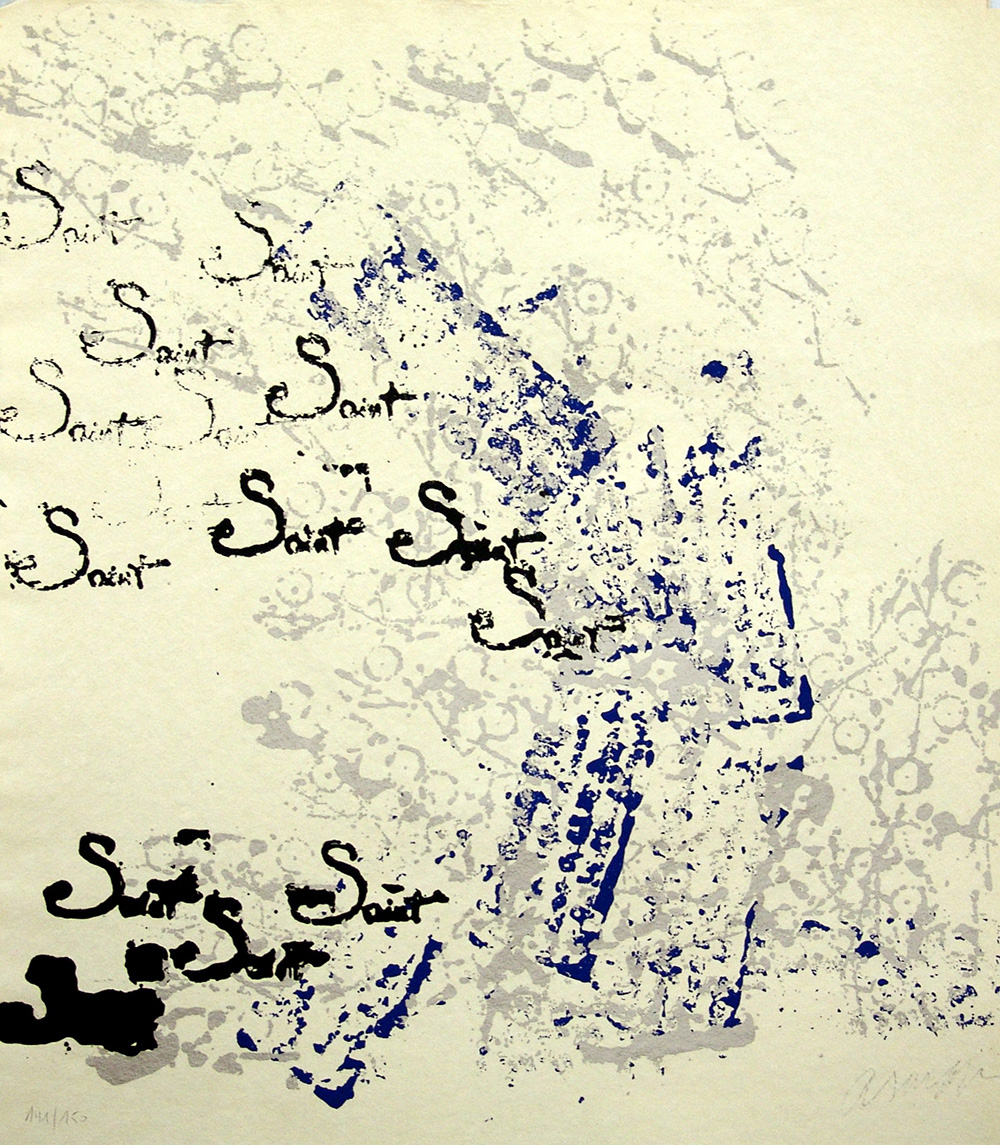 Saint
Saint
Saint
Saint
Saint
Saint
Saint
Saint
Saint
Saint
Saint
Saint
Saint
Saint
141/150